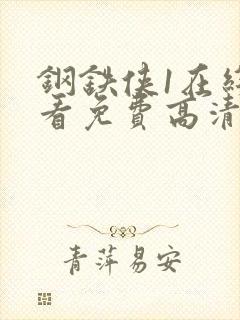 鋼鉄俠1在
看免費高清
青萍易安